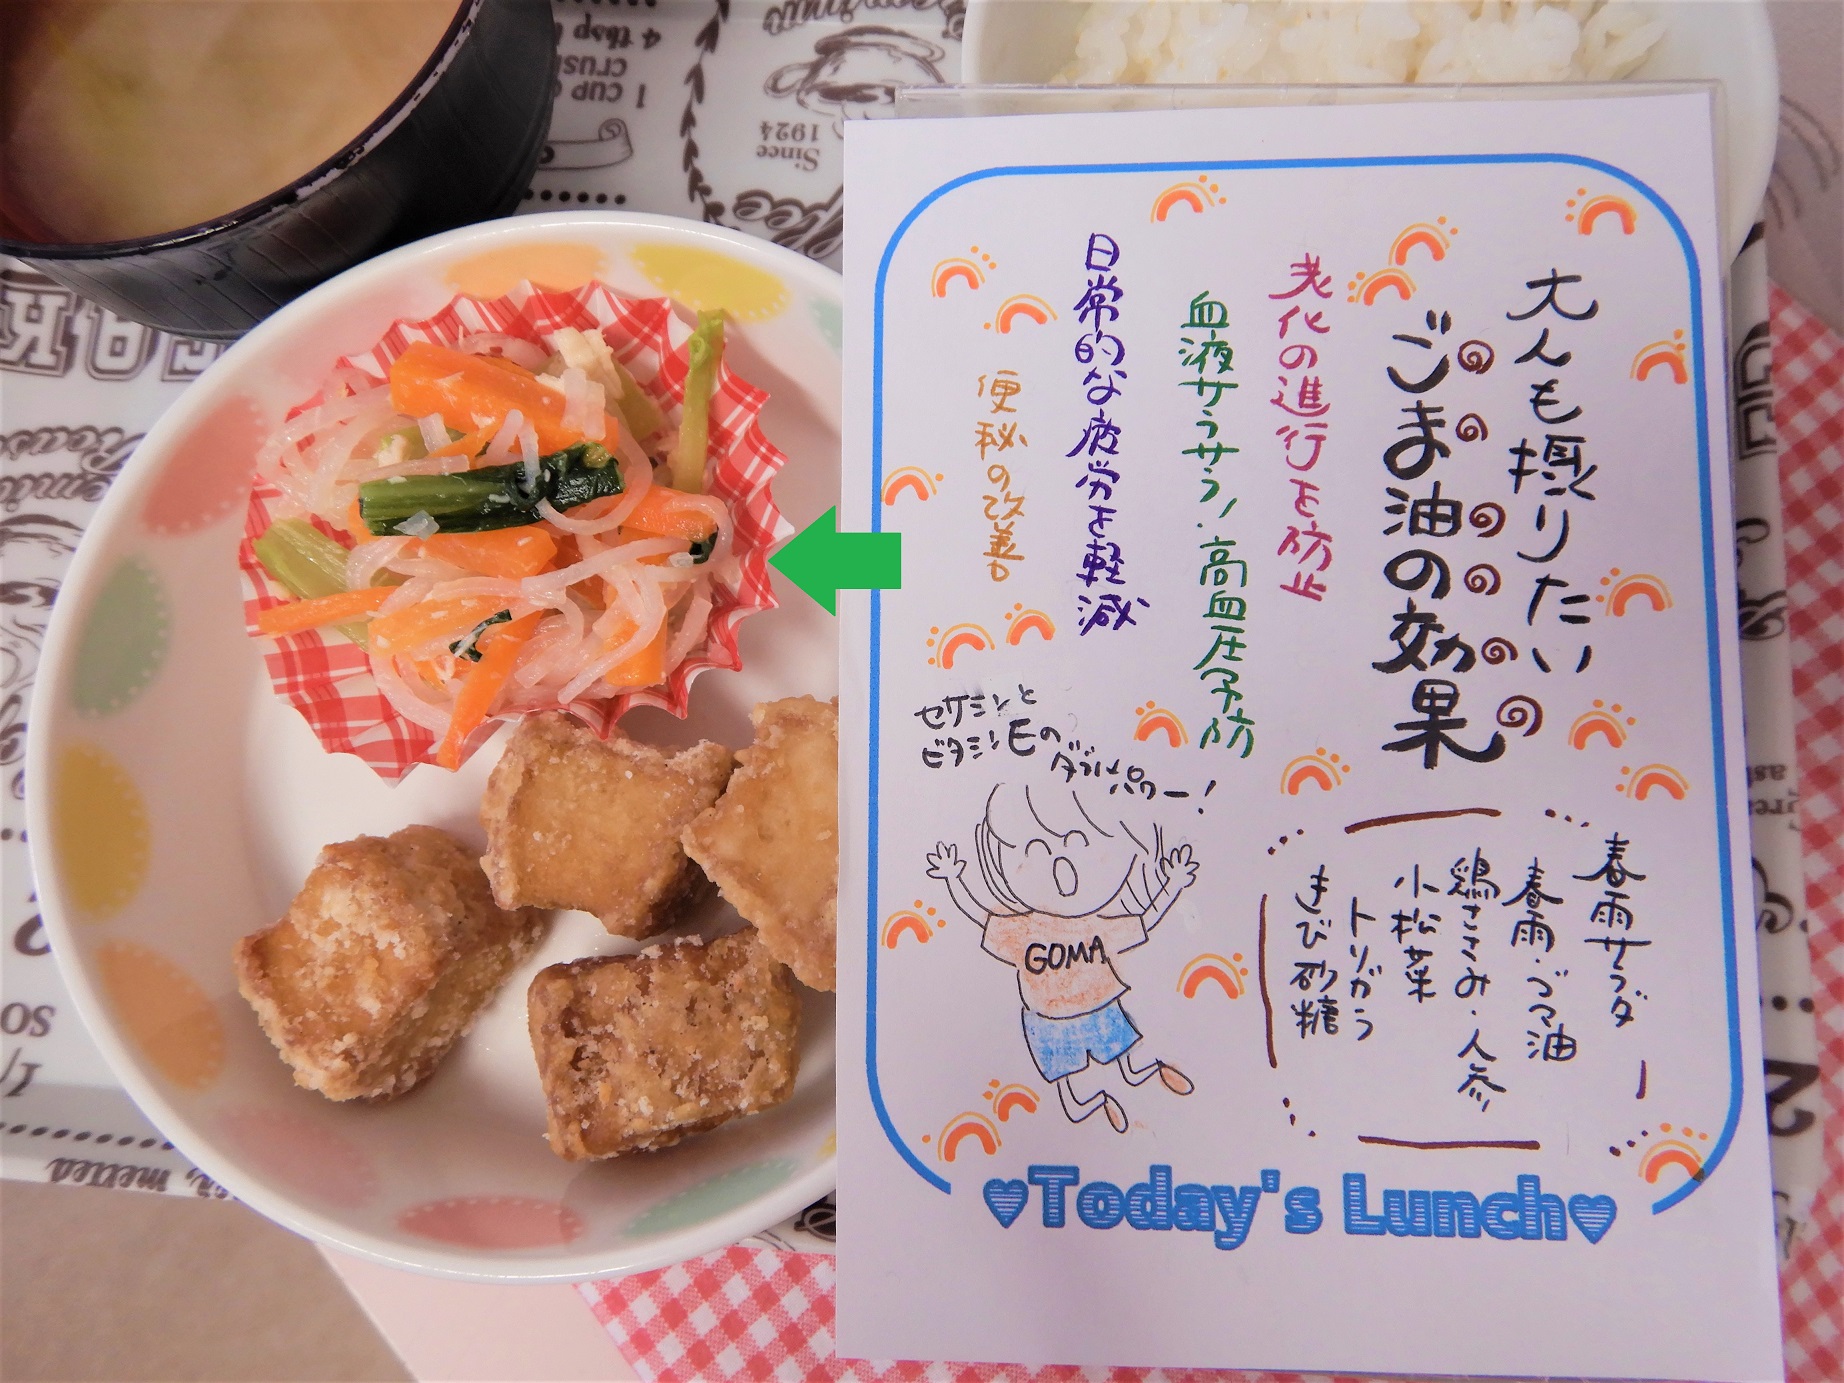 大人も摂りたい
ごま油の効果
老化の進行を防止
血液サラサラ!高血圧予防
日常的な疲労を軽減
便秘の改善
セサミンと
ビタミンEの
ダブルパワー!
GOMA
春雨サラダ
春雨・ゴマ油
鶏ささみ・人参
小松菜
トリガラ
きび砂糖
♥Today's Lunch♥
4 tbsp
1 CUP
Since
1924